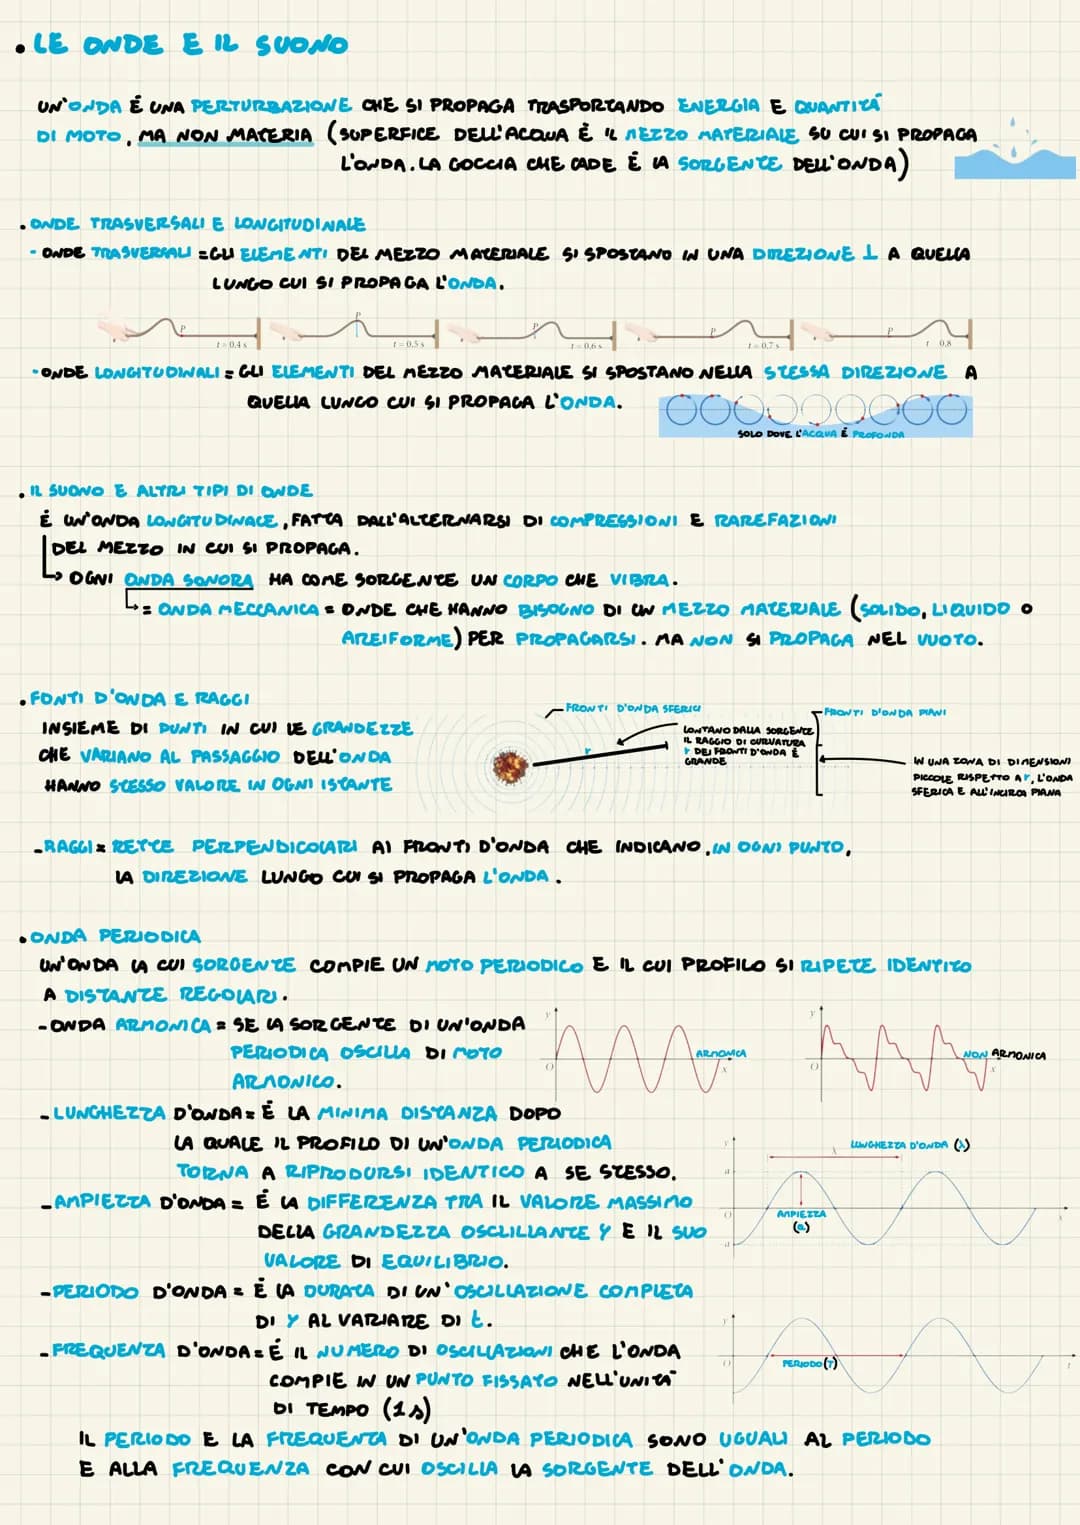 . LE ONDE E IL SUONO
UN'ONDA É UNA PERTURBAZIONE CHE SI PROPAGA TRASPORTANDO ENERGIA E QUANTITÀ
DI MOTO, MA NON MATERIA (SUPERFICE DELL'ACQUA È IL MEZZO MATERIALE SU CUI SI PROPAGA
L'ONDA. LA GOCCIA CHE CADE É LA SORGENTE DELL'ONDA)
. ONDE TRASVERSALI E LONGITUDINALE
- ONDE TRASVERSALI = GLI ELEMENTI DEL MEZZO MATERIALE SI SPOSTANO IN UNA DIREZIONE ⊥ A QUELLA
LUNGO CUI SI PROPAGA L'ONDA.
P P P P P
t = 0,4 s t = 0,5 s t = 0,6 s t = 0,7 s t 0,8
- ONDE LONGITUDINALI = GLI ELEMENTI DEL MEZZO MATERIALE SI SPOSTANO NELLA STESSA DIREZIONE A
QUELLA LUNGO CUI SI PROPAGA L'ONDA.
SOLO DOVE L'ACQUA É PROFONDA
. IL SUONO E ALTRI TIPI DI ONDE
É UN'ONDA LONGITUDINALE, FATTA DALL'ALTERNARSI DI COMPRESSIONI E RAREFAZIONI
DEL MEZZO IN CUI SI PROPAGA.
OGNI ONDA SONORA HA COME SORGENTE UN CORPO CHE VIBRA.
= ONDA MECCANICA = ONDE CHE HANNO BISOGNO DI UN MEZZO MATERIALE (SOLIDO, LIQUIDO O
AREIFORME) PER PROPAGARSI. MA NON SI PROPAGA NEL VUOTO.
. FONTI D'ONDA E RAGGI
INSIEME DI PUNTI IN CUI LE GRANDEZZE
CHE VARIANO AL PASSAGGIO DELL'ONDA
HANNO STESSO VALORE IN OGNI ISTANTE
FRONTI D'ONDA SFERICI
r
LONTANO DALLA SORGENTE
IL RAGGIO DI CURVATURA
r DEI FRONTI D'ONDA È
GRANDE
FRONTI D'ONDA PIANI
IN UNA ZONA DI DIMENSIONI
PICCOLE RISPETTO A r, L'ONDA
SFERICA E ALL'INCIRCA PIANA
- RAGGI = RETTE PERPENDICOLARI AI FRONTI D'ONDA CHE INDICANO, IN OGNI PUNTO,
LA DIREZIONE LUNGO CUI SI PROPAGA L'ONDA.
. ONDA PERIODICA
UN'ONDA LA CUI SORGENTE COMPIE UN MOTO PERIODICO E IL CUI PROFILO SI RIPETE IDENTITO
A DISTANZE REGOLARI.
- ONDA ARMONICA = SE LA SORGENTE DI UN'ONDA
PERIODICA OSCILLA DI MOTO
ARMONICO.
y O x ARMONICA
y O x NON ARMONICA
- LUNGHEZZA D'ONDA = É LA MINIMA DISTANZA DOPO
LA QUALE IL PROFILO DI UN'ONDA PERIODICA
TORNA A RIPRODURSI IDENTICO A SE STESSO.
y λ LUNGHEZZA D'ONDA (λ)
a
O AMPIEZZA x
(a)
- AMPIEZZA D'ONDA = É LA DIFFERENZA TRA IL VALORE MASSIMO
DELLA GRANDEZZA OSCLILLANTE Y E IL SUO
VALORE DI EQUILIBRIO.
- PERIODO D'ONDA = É LA DURATA DI UN'OSCILLAZIONE COMPLETA
DI Y AL VARIARE DI t.
- FREQUENZA D'ONDA = É IL NUMERO DI OSCILLAZIONI CHE L'ONDA
COMPIE IN UN PUNTO FISSATO NELL'UNITÀ
DI TEMPO (1 s)
y O PERIODO (T) t
IL PERIODO E LA FREQUENTA DI UN'ONDA PERIODICA SONO UGUALI AL PERIODO
E ALLA FREQUENZA CON CUI OSCILLA LA SORGENTE DELL'ONDA.